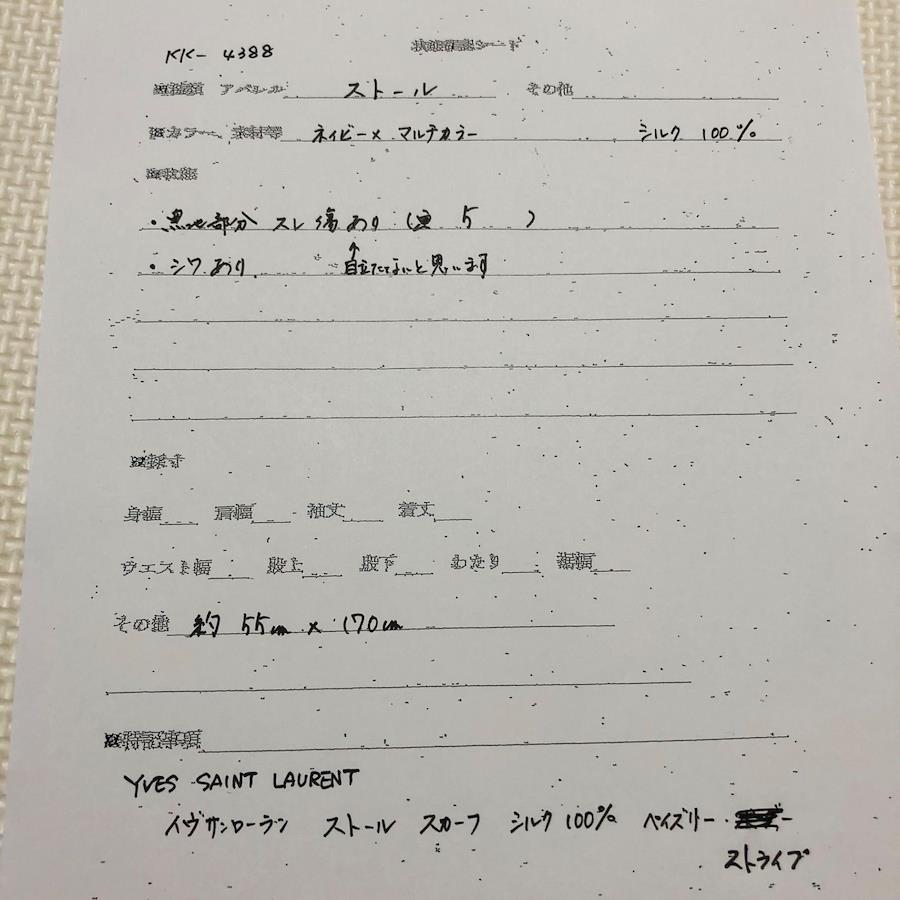 KK- 4388
状態確認シート
※種類 アパレル ストール その他
※カラー、素材等 ネイビー× マルチカラー シルク 100%
※状態
・黒地部分 スレ傷あり ( 5 )
・シワあり ↑目立たないと思います
※採寸
身幅 肩幅 袖丈 着丈
ウエスト幅 股上 股下 わたり 裾幅
その他 約 55cm × 170cm
※特記事項
YVES SAINT LAURENT
イヴサンローラン ストール スカーフ シルク 100% ペイズリー
ストライプ